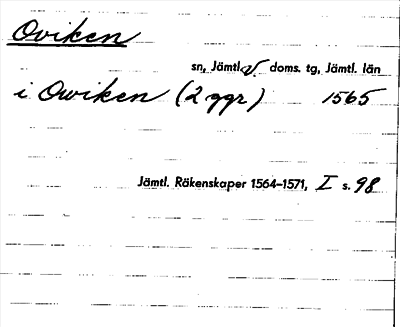 Oviken
sn, Jämtl. v. doms. tg, Jämtl. län
i Owiken (2 ggr) 1565
Jämtl. Räkenskaper 1564–1571, I s. 98